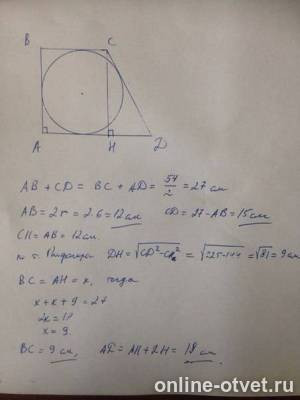 B C
A H D
AB + CD = BC + AD = 54/2 = 27 см
AB = 2r = 2·6 = 12 см CD = 27 - AB = 15 см
CH = AB = 12 см.
по т. Пифагора DH = √CD² - CH² = √225-144 = √81 = 9 см
BC = AH = x, тогда
x + x + 9 = 27
2x = 18
x = 9.
BC = 9 см, AD = AH + DH = 18 см
online-otvet.ru